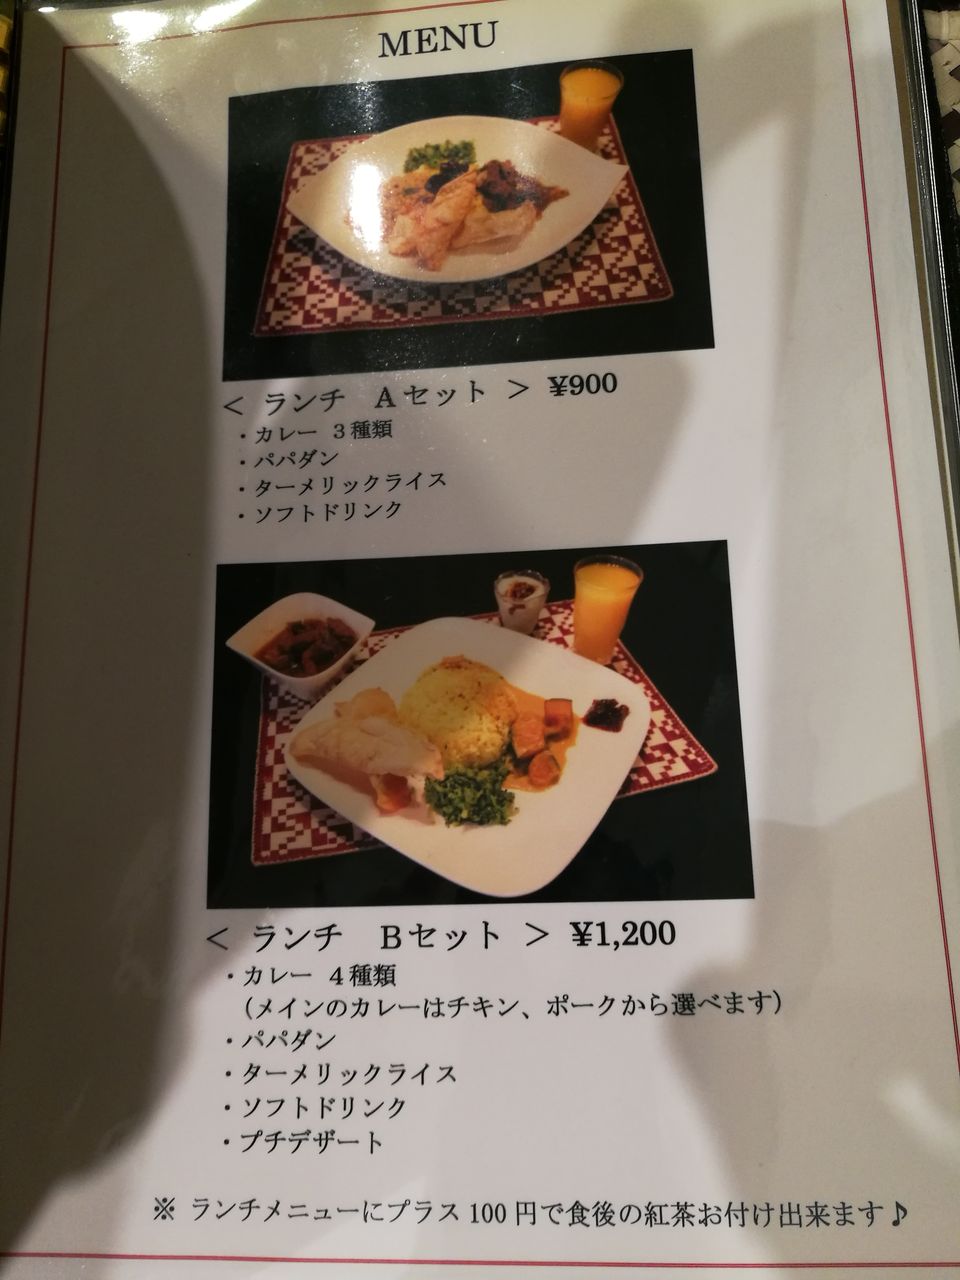 MENU
< ランチ　Aセット > ¥900
・カレー ３種類
・パパダン
・ターメリックライス
・ソフトドリンク
< ランチ　Bセット > ¥1,200
・カレー ４種類
（メインのカレーはチキン、ポークから選べます）
・パパダン
・ターメリックライス
・ソフトドリンク
・プチデザート
※ ランチメニューにプラス100円で食後の紅茶お付け出来ます♪